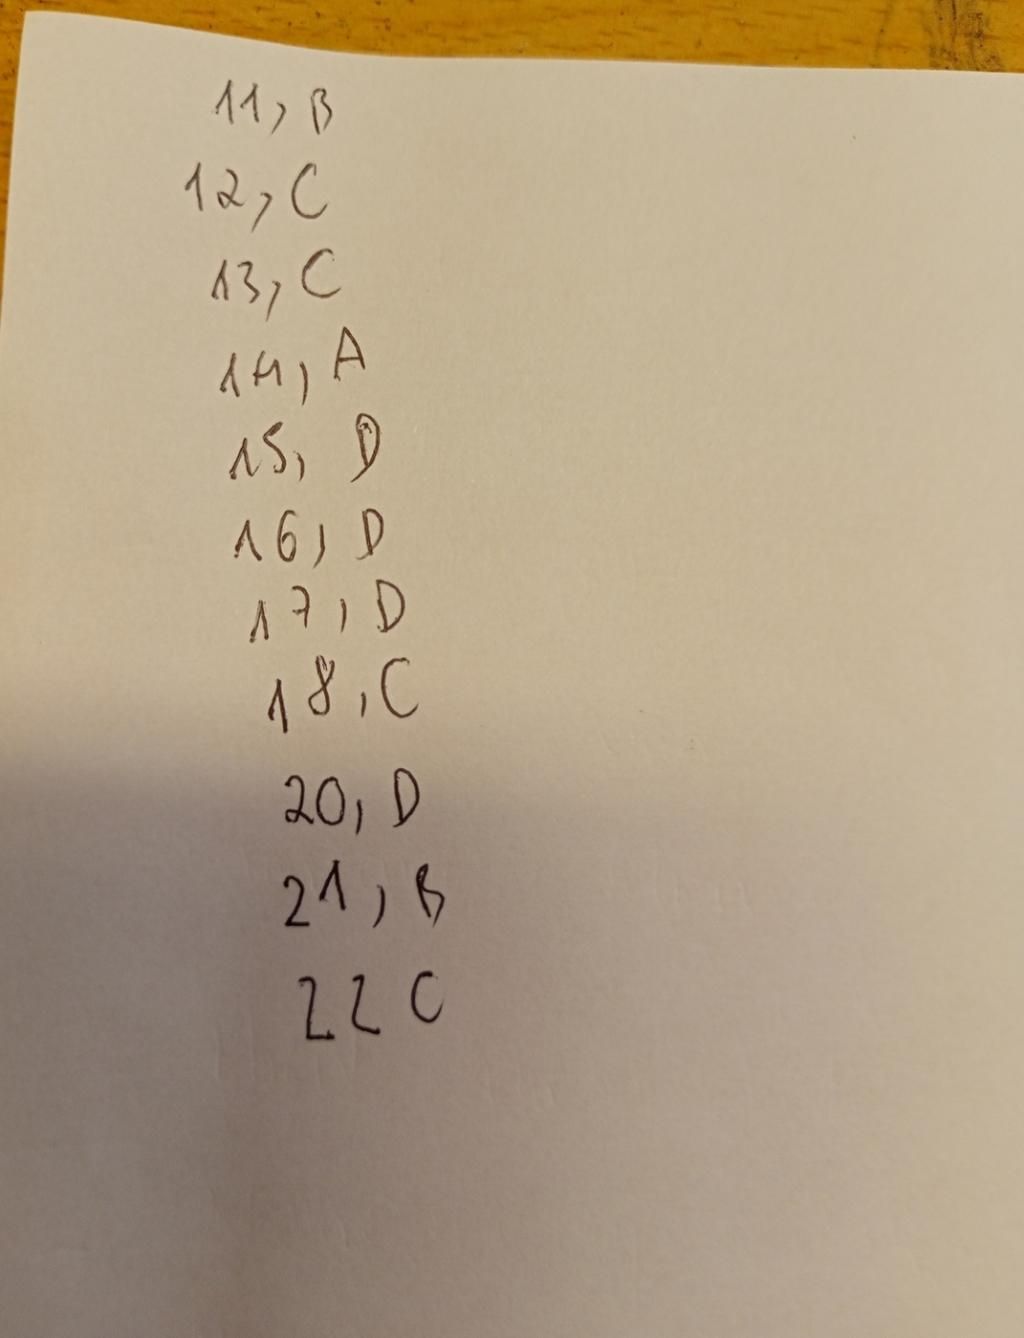 11, B
12, C
13, C
14, A
15, D
16, D
17, D
18, C
20, D
21, B
22 C